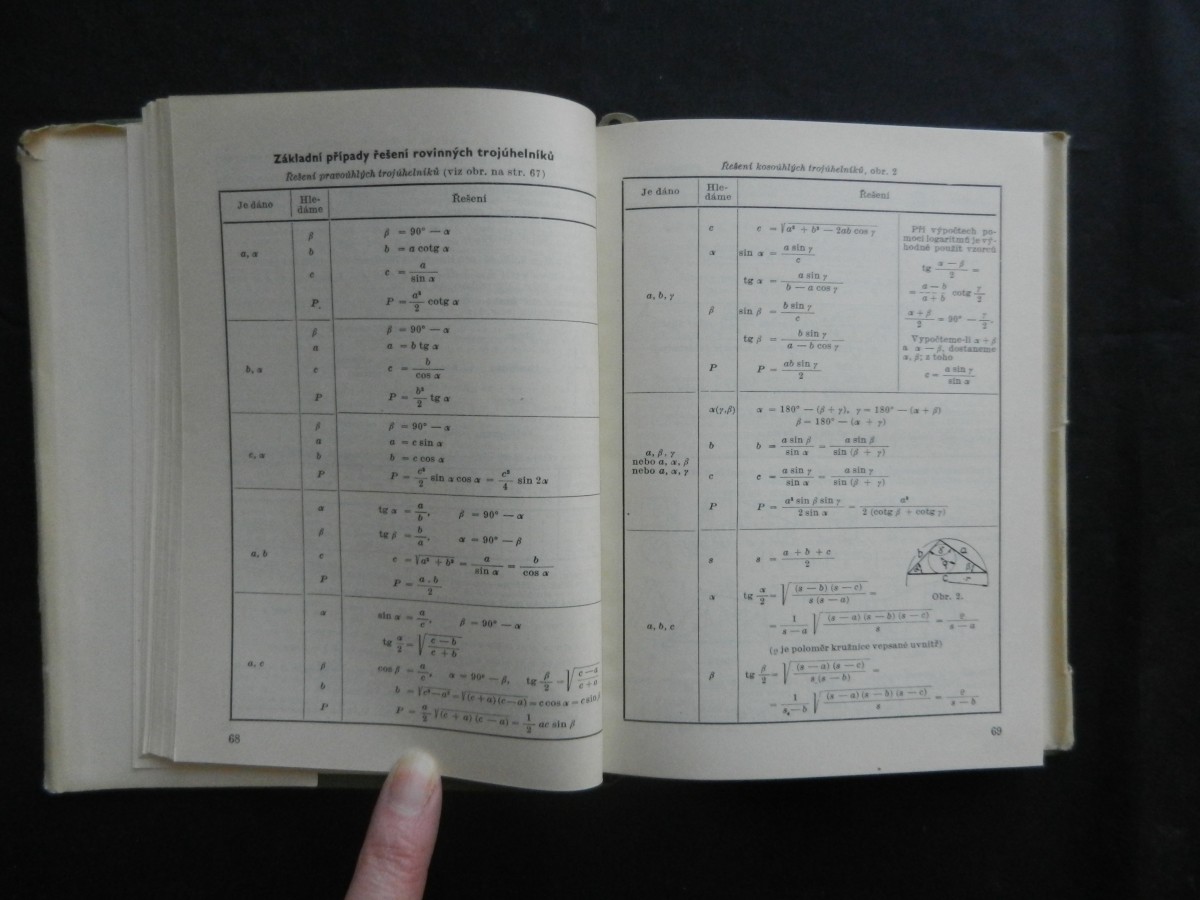 Základní případy řešení rovinných trojúhelníků
Řešení pravoúhlých trojúhelníků (viz obr. na str. 67)
Je dáno Hledáme Řešení
a, α
β β = 90° — α
b b = a cotg α
c c = a / sin α
P. P = a² / 2 cotg α
b, α
β β = 90° — α
a a = b tg α
c c = b / cos α
P P = b² / 2 tg α
c, α
β β = 90° — α
a a = c sin α
b b = c cos α
P P = c² / 2 sin α cos α = c² / 4 sin 2α
a, b
α tg α = a / b, β = 90° — α
β tg β = b / a, α = 90° — β
c c = √(a² + b²) = a / sin α = b / cos α
P P = a . b / 2
a, c
α sin α = a / c, β = 90° — α
tg α / 2 = √((c — b) / (c + b))
β cos β = a / c, α = 90° — β, tg β / 2 = √((c — a) / (c + a))
b b = √(c² — a²) = √((c + a) (c — a)) = c cos α = c sin β
P P = a / 2 √((c + a) (c — a)) = 1 / 2 ac sin β
68
Řešení kosoúhlých trojúhelníků, obr. 2
Je dáno Hledáme Řešení
a, b, γ
c c = √(a² + b² — 2ab cos γ)
α sin α = a sin γ / c
tg α = a sin γ / (b — a cos γ)
β sin β = b sin γ / c
tg β = b sin γ / (a — b cos γ)
P P = ab sin γ / 2
Při výpočtech po-
moci logaritmů je vý-
hodné použít vzorců
tg (α — β) / 2 =
= (a — b) / (a + b) cotg γ / 2
(α + β) / 2 = 90° — γ / 2.
Vypočteme-li α + β
a α — β, dostaneme
α, β; z toho
c = a sin γ / sin α
a, β, γ
nebo a, α, β
nebo a, α, γ
α(γ,β) α = 180° — (β + γ), γ = 180° — (α + β)
β = 180° — (α + γ)
b b = a sin β / sin α = a sin β / sin (β + γ)
c c = a sin γ / sin α = a sin γ / sin (β + γ)
P P = a² sin β sin γ / 2 sin α = a² / 2 (cotg β + cotg γ)
a, b, c
s s = (a + b + c) / 2
Obr. 2.
α tg α / 2 = √((s — b) (s — c) / s (s — a)) =
= 1 / (s — a) √((s — a) (s — b) (s — c) / s) = ϱ / (s — a)
(ϱ je poloměr kružnice vepsané uvnitř)
β tg β / 2 = √((s — a) (s — c) / s (s — b)) =
= 1 / (s — b) √((s — a) (s — b) (s — c) / s) = ϱ / (s — b)
69